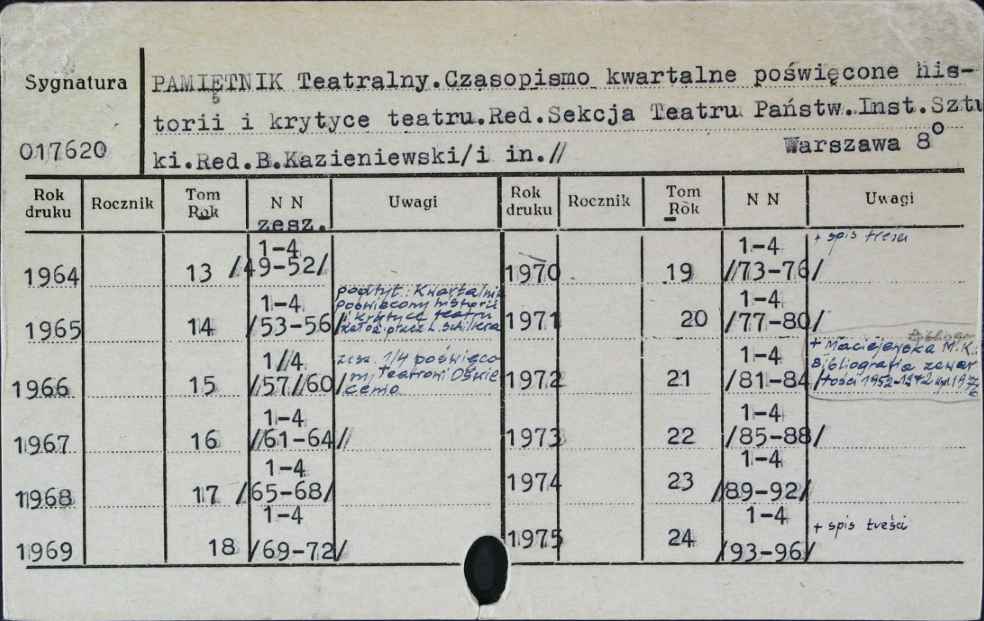 Sygnatura
PAMIĘTNIK Teatralny.Czasopismo kwartalne poświęcone his-
torii i krytyce teatru.Red.Sekcja Teatru Państw.Inst.Sztu
017620
ki.Red.B.Kazieniewski/i in.// Warszawa 8°
Rok druku Rocznik Tom Rok N N zesz. Uwagi Rok druku Rocznik Tom Rok N N Uwagi
1964 13 1-4 /49-52/ 1970 19 1-4 /73-76/ + spis treści
1965 14 1-4 /53-56/ podtyt.: Kwartalnik
poświęcony historii
i krytyce teatru
zał. przez L. Schillera
1971 20 1-4 /77-80/
1966 15 1//4 /57//60/ zesz. 1/4 poświęco
Teatrowi Oświe
cemo
1972 21 1-4 /81-84/ + Maciejewska M.K.:
Bibliografia zawar
tości 1952-1972
1967 16 1-4 /61-64// 1973 22 1-4 /85-88/
1968 17 1-4 /65-68/ 1974 23 1-4 /89-92/
1969 18 1-4 /69-72/ 1975 24 1-4 /93-96/ + spis treści